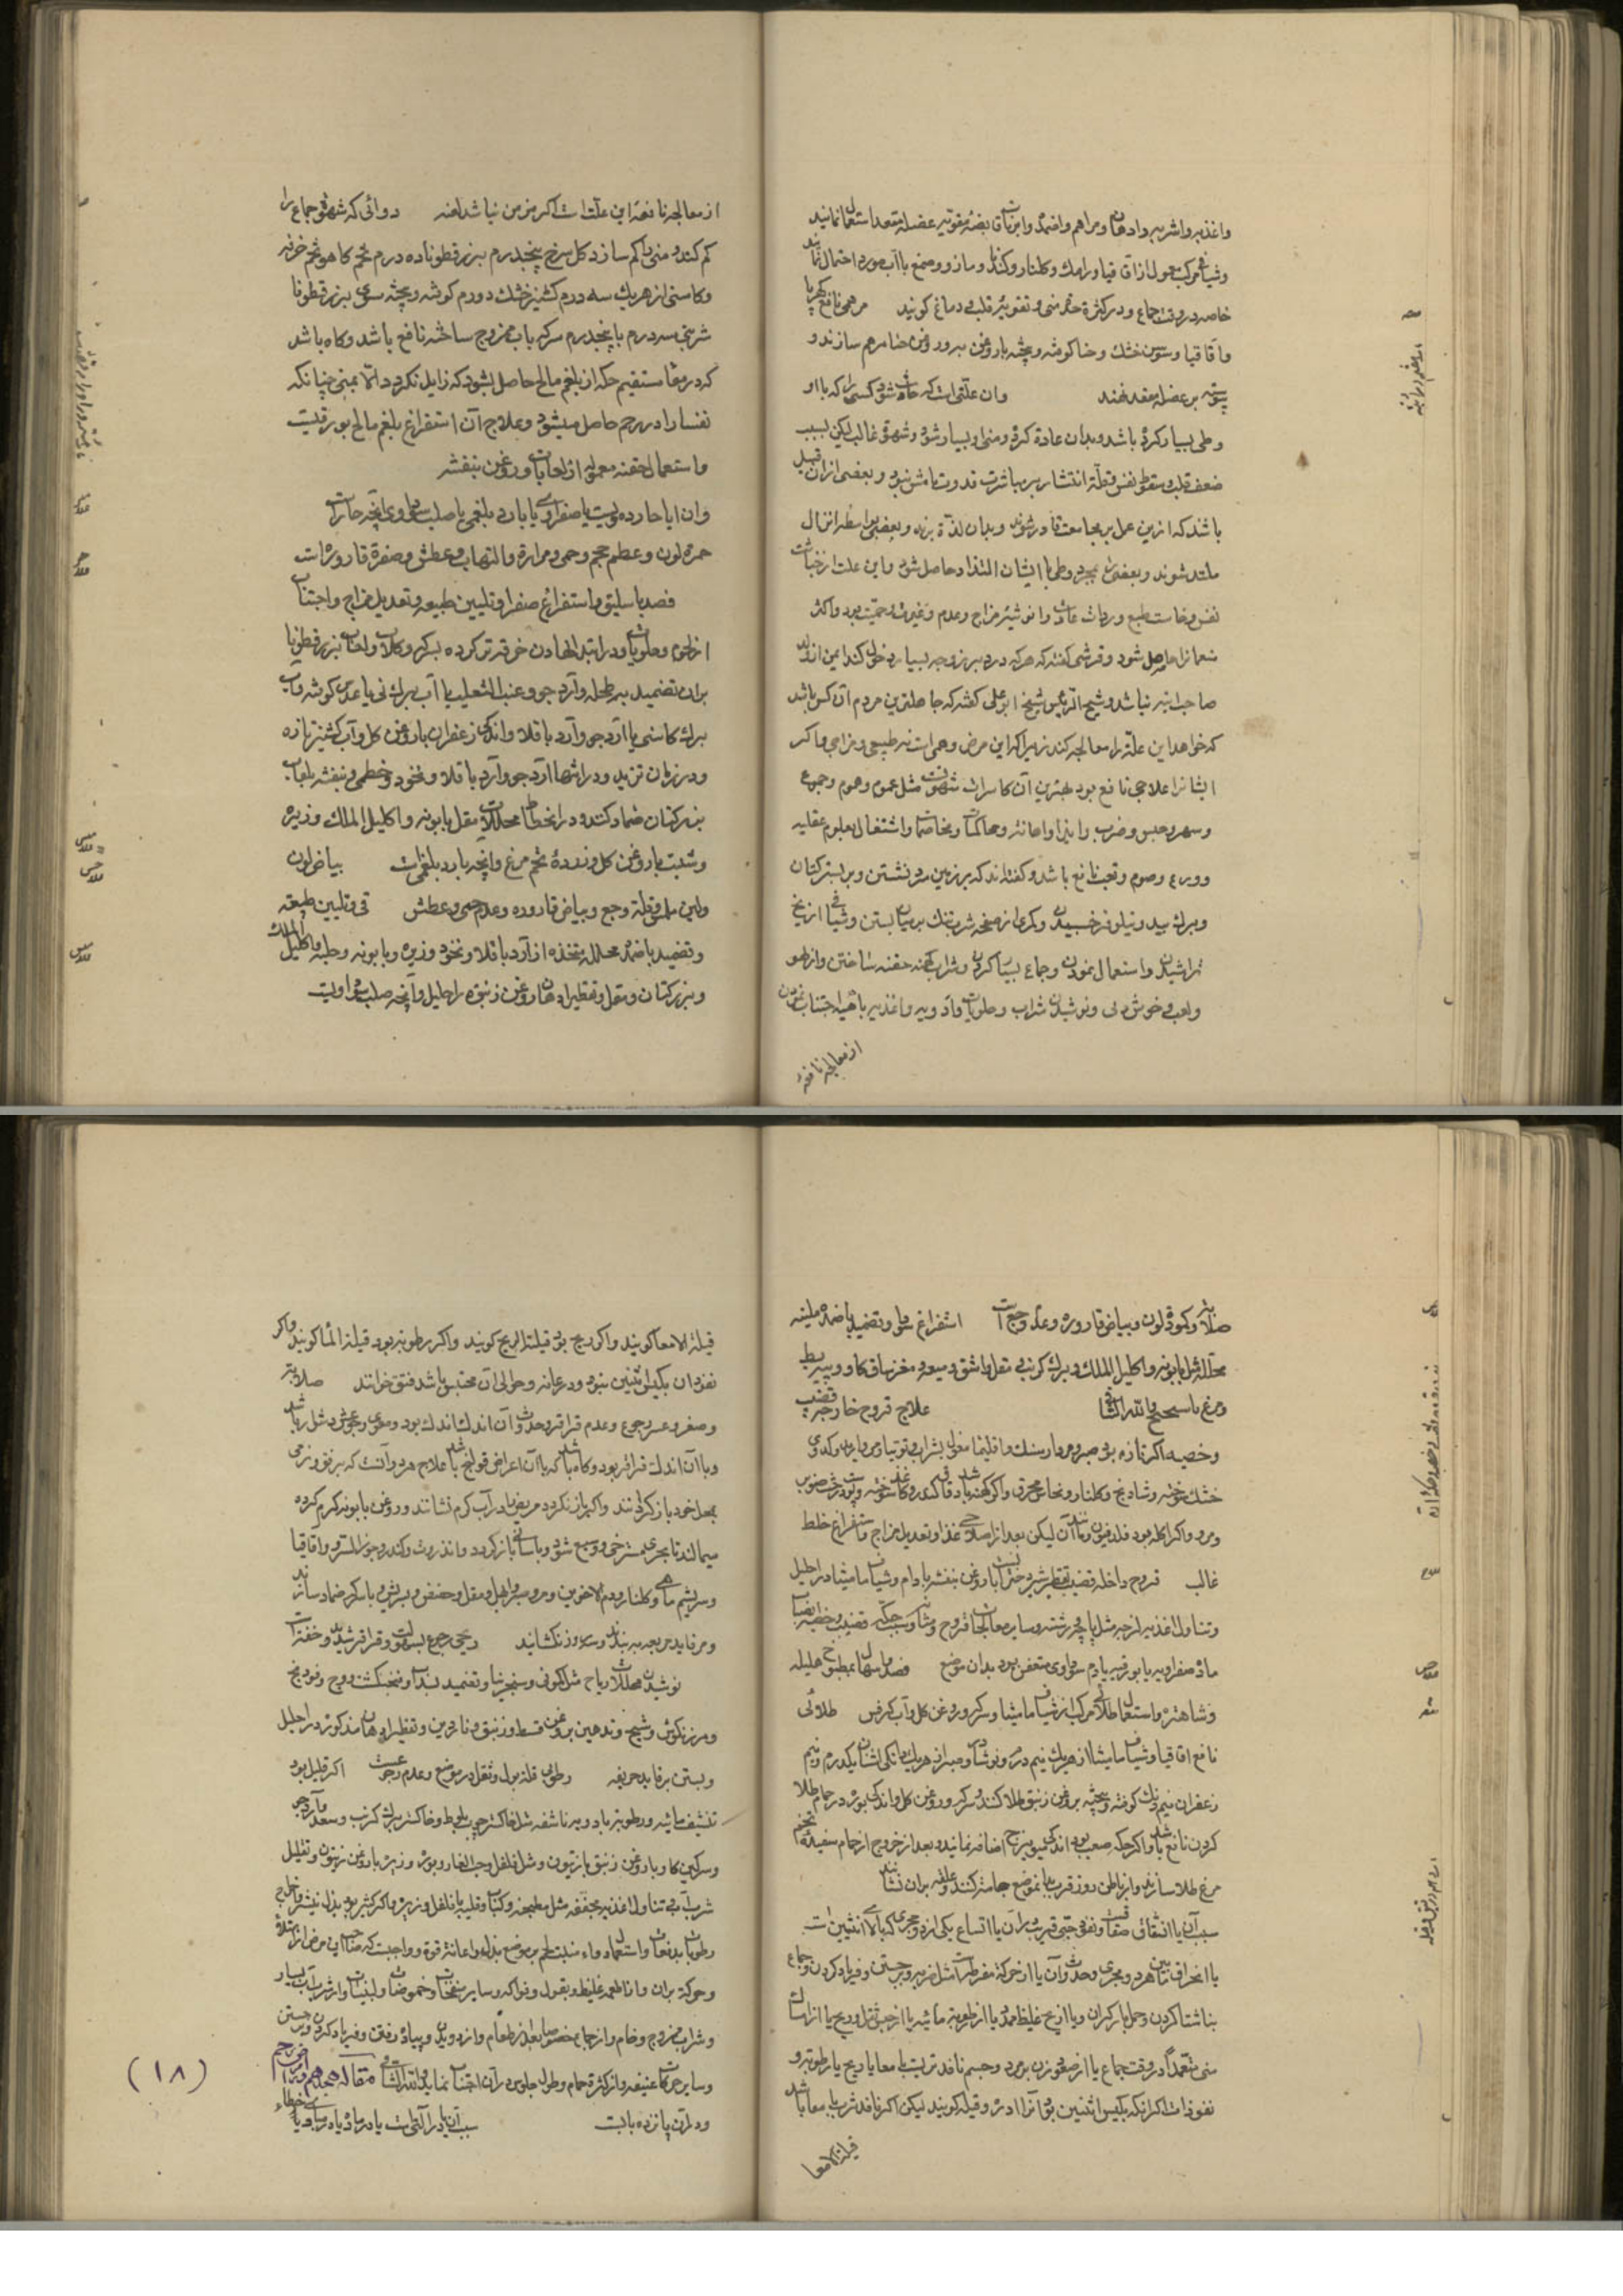 واغذیه واشربه وادهان ومراهم واضمدۀ وابزنات قابضۀ مقویه عضلۀ مقعد استعمال نمایند
وشیافی مرکب معمول از اقاقیا ورامک وکلنار وکندر ومازو وصمغ باآب مورد احتمال نمایند
خاصه در وقت جماع ودر کثرة منی وتقویۀ قلب ودماغ کوشند مرهمی نافع کهربا
واقاقیا وسوسن خشک وحنا کوفته وبیخته باروغن مورد وروغن حنا مرهم سازند و
پیوسته بر عضلۀ مقعد نهند وان علتی است که حادث شود کسی را که با او
وطی بسیار کرده باشد وبدان عادة کرده ومنی او بسیار شود وشهوة غالب لیکن بسبب
ضعف قلب وسقوط نفس وقلة انتشار بر مباشرت قدوت تامش نبود وبعضی از ان قبیل
باشد که ازین عمل بر مجامعت قادر شوند وبدان لذة برند وبعضی بواسطه انزال
ملتذ شوند وبعضی را بمجرد وطی با ایشان التذاذ حاصل شود واین علت از خباثت
نفس وخاست طبع وردائت عادت وانوثیة مزاج وعدم وغیرت وحمیت بود واکثر
منعمانرا حاصل شود وقرشی کفته که هرکه در دبر زوجه بسیار دخول کند ایمن از ولد
صاحب ابنه نباشد وشیخ الرئیس شیخ ابوعلی کفته که جاهلترین مردم آن کس باشد
که خواهد این علة را معالجه کند زیرا که این مرض وهمی است نه طبیعی ومزاجی واکر
ایشانرا علاجی نافع بود بهترین آن کاسرات شهوت مثل غموم وهموم وجوع
وسهر وحبس وضرب وایذا واهانة ومحاکمات ومخاصمات واشتغال بعلوم عقلیه
وورع وصوم وتعب نافع باشد وکفته اند که بر زمین سرد نشستن وبر بستر کتان
وبرک بید ونیلوفر خسبیدن وکمری از صفحه سرب تنک بر میان بستن وشیافی از یخ
تراشیدن واستعمال نمودن وجماع بسیار کردن وشراب کهنه حقنه ساختن واز لهو
ولعب وخوش دلی ونوشیدن شراب وحلویات وادویه واغذیه باهیه اجتناب نمودن
از معالجه نافعۀ
از معالجه نافعۀ این علت است اکر مزمن نباشد انه دوائی که شهوة جماع را
کم کند ومنی را کم سازد کل سرخ پنجدرم بزر قطونا ده درم تخم کاهو تخم خرفه
وکاسنی از هر یک سه درم کشنیز خشک دو درم کوفته وبیخته سوی بزر قطونا
شربتی سه درم با پنجدرم سرکه باب ممزوج ساخته نافع باشد وکاه باشد
که در معا مستقیم حکه از بلغم مالح حاصل بشود که زایل نکردد الا بمنی چنانکه
نفسا را در رحم حاصل میشود وعلاج آن استفراغ بلغم مالح بورقیست
واستعمال حقنه معموله از لعابات وروغن بنفشه
وان ایا حار دمویست یا صفراوی یا بارد بلغمی یا صلب سوداوی وآنچه حار است
حمرة لون وعظم حجم وحمی وحرارة والتهاب وعطش وصفرة قاروره است
فصد باسلیق واستفراغ صفرا وتلیین طبیعه وتعدیل مزاج واجتناب
از لحوم وحلویات ودر ابتدا نهادن خرقه تر کرده بسرکه وکلاب ولعاب بزر قطونا
بران تضمید به طحلب وآرد جو وعنب الثعلب با آب برک نی یا عدس کوفته وآب
برک کاسنی یا آرد جو وآرد باقلا واندکی زعفران با روغن کل وآب کشنیز تازه
ودر زمان تزید ودر انتها آرد جو وآرد باقلا ونخود وخطمی وبنفشه بلعاب
بزر کتان ضماد کنند ودر انحطاط محللات مقل بابونه واکلیل الملک وزیره
وشبت باروغن کل وزردۀ تخم مرغ وآنچه بارد بلغمی است بیاض لون
ولین ملمس وقلة وجع وبیاض قاروره وعدم حمی وعطش قی وتلیین طبیعه
وتضمید باضمدۀ محللۀ متخذه از آرد باقلا ونخود وزیره وبابونه وحلبه واکلیل الملک
وبزر کتان ومقل وتقطیر ادهان روغن زنبق در احلیل وآنچه صلب سوداویست
صلابة وکمودة لون وبیاض قاروره وعدم وجع است استفراغ سودا وتضمید باضمدۀ ملینه
محللۀ مثل بابونه واکلیل الملک وبرک کرنب ومقل واشق ومیعه ومغز ساق کاو وپیه بط
ومرغ باسیحیج والله الشافی علاج قروح خارجه قضیب
وخصیه اکر تازه بود صبر ومردارسنک واقلیمیا مغسول بشراب وتوتیا ومروارید وکدوی
خشک سوخته وشادنج وکلنار ونحاس محرق واکر کهنه باشد دقاق کندر وکاغذ سوخته وپوست درخت صنوبر
ومر واکر اکله بود فلدفیون ومانند آن لیکن بعد از اصلاح غذا وتعدیل مزاج واستفراغ خلط
غالب قروح داخله قضیب تقطیر شیر دختر است باروغن بنفشه بادام وشیاف مامیثا در احلیل
وتناول اغذیه لزجه مثل پاچه ورشته وسایر معالجات قروح مثانه وسبب حکه قضیب وخصیه انصباب
مادۀ صفراویه یا بورقیه یا دم سوداوی متعفن بود بدان موضع فصد واسهال بمطبوخ هلیله
وشاهتره واستعمال طلائی مرکب از شیاف مامیثا وسرکه وروغن کل وآب کرفس طلائی
نافع اقاقیا وشیاف مامیثا از هر یک نیم درم ونوشادر وصبر از هر یک دانکی اشنان یکدرم ونیم
زعفران نیم دانک کوفته وبیخته بروغن زنبق طلا کنند وسرکه وروغن کل واندکی بوره در حمام طلا
کردن نافع باشد واکر حکه صعب بود اندکی میویزج اضافه نمایند وبعد از خروج از حمام سفیدۀ تخم
مرغ طلا سازند واز باطن دو زقرب بموضع حجامت کنند وعلقه بران نشانند
سبب آن یا انشقاق صفاق وفقی حتی قریب بدان یا اتساع یکی از دو مجری که بالای انثیین است
یا انحراف مابین هر دو مجری وحدوث آن یا از حرکة مفرطه است مثل ضربه وبر جستن وفریاد کردن وجماع
بناشتا کردن وحمل بار کران ویا از ریح غلیظ ممدد یا از رطوبة مائیه یا از حبس ثفل وریح یا از امساک
منی متعمداً در وقت جماع یا از صعود زن بر مرد وجسم نافذ ثربیست یا معا یا ریح یا رطوبة و
نفوذ است اکر انکه بکیس انثیین بود آنرا ادره وقیله کویند لیکن اکر نافذ ثرب یا معا باشد
قیلة الامعا
قیلة الامعا کویند واکر ریح بود قیلة الریح کویند واکر رطوبه بود قیلة الماء کویند واکر
نفوذ ان بکیس انثیین نبود ودر عانه وحوالی آن محتبس باشد فتق خوانند صلابة
وصغر وعسر رجوع وعدم قراقر وحدوث آن اندک اندک بود ومعوی رجوعش مشکل باشد
وبا آن اندک قراقر بود وکاه باشد که با آن اعراض قولنج باشد علاج هر دو آنست که برفق ونرمی
بمحل خود باز کردانند واکر باز نکردد مریض را در آب کرم نشانند وروغن بابونه کرم کرده
میمالند تا مجری مسترخی ووسیع شود وبآسانی باز کردد وانزروت وکندر وجوز السرو واقاقیا
وسریشم ماهی وکلنار ودم الاخوین ومر وسرو وابهل ومقل وحضض وسریش باسرکه ضماد سازند
ومرفاید مربعه ببندند وسه روز نکشایند ریحی رجوع بسهولت وقراقر شدید وخفة است
نوشیدن محللات ریاح مثل کمونی وسنجرینا وتضمید بسداب وفنجنکشت ووج وفودنج
ومرزنکوش وشیح وتدهین بروغن قسط وزنبق وناردین وتقطیر ادهان مذکوره در احلیل
وبستن برفاید حریفه رطوبی قلة بول وثقل در موضع وعدم وجع است اکر قلیل بود
تنشیف مائیه ورطوبه بادویه ناشفه مثل خاکستر چوب بلوط وخاکستر برک کرنب وسعد وآرد جو
وسرکین کاو وباروغن زنبق یا زیتون ومثل فلفل وحب الغار وبوره وزیره باروغن زیتون وتقلیل
شرب آب وتناول اغذیه مجففه مثل مطبخه وکباب وقلیه با فلفل وزیره واکر کثیر بود بزل نیشتر واخراج
رطوبات بدفعات واستعمال دواء منبت لحم بر موضع بزل واعانة قوة وواجبست که صاحب این مرض از امتلا
وحرکة بران واز اطعمه غلیظه وبقول وفواکه وسایر منفخات وحموضات ولبنیات واز شرب آب بسیار
وشراب ممزوج وخام واز جماع خصوصا بعد از طعام واز دویدن وپیاده رفتن وفریاد کردن وبر جستن
وسایر حرکات عنیفه واز کثرة حمام وطول جلوس در آن اجتناب نماید والله الشافی مقاله هجدهم در امراض رحم
ودر آن پانزده بابست سبب آن یا در آلتی است یا در ماده یا در مبادی یا خطاء
(۱۸)